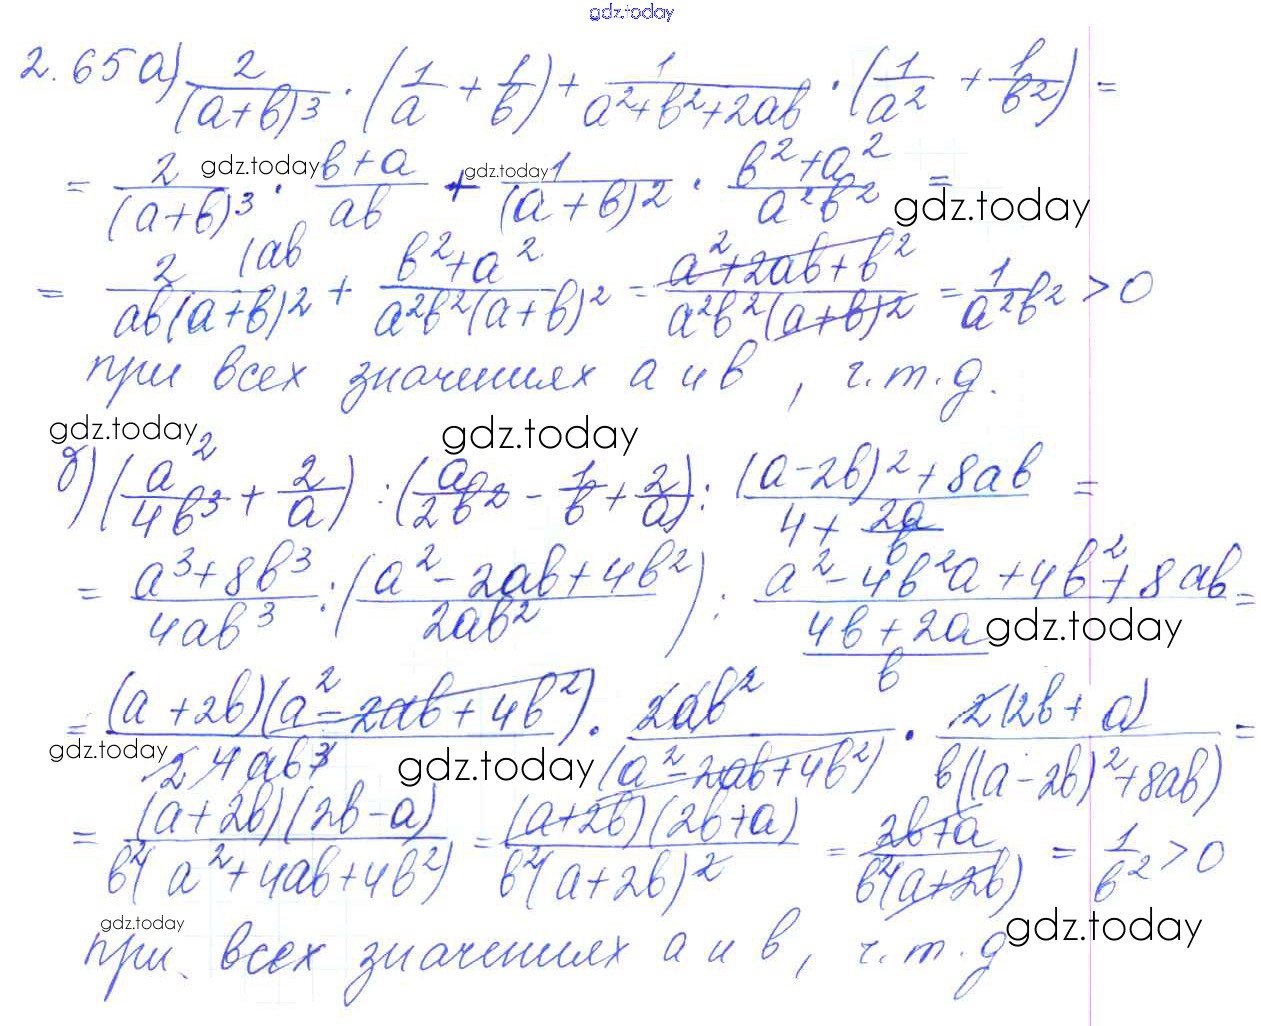 gdz.today
2.65 а) 2/(a+b)³ · (1/a + 1/b) + 1/(a²+b²+2ab) · (1/a² + 1/b²) =
= 2/(a+b)³ · (b+a)/(ab) + 1/(a+b)² · (b²+a²)/(a²b²) =
gdz.today gdz.today gdz.today
= 2 (ab / (ab(a+b)²) + (b²+a²)/(a²b²(a+b)²) = (a²+2ab+b²)/(a²b²(a+b)²) = 1/(a²b²) > 0
при всех значениях a и b, ч.т.д.
gdz.today gdz.today
б) (a²/(4b³) + 2/a) : (a/(2b²) - 1/b + 2/a) : ((a-2b)²+8ab)/(4 + 2a/b) =
= (a³+8b³)/(4ab³) : ((a²-2ab+4b²)/(2ab²)) : (a²-4b²a+4b²+8ab)/((4b+2a)/b) =
gdz.today
= (a+2b)(a²-2ab+4b²)/(2 4ab³) · 2ab²/(a²-2ab+4b²) · 2(2b+a)/(b((a-2b)²+8ab)) =
gdz.today gdz.today
= (a+2b)(2b-a)/(b²(a²+4ab+4b²)) = (a+2b)(2b+a)/(b²(a+2b)²) = (2b+a)/(b²(a+2b)) = 1/b² > 0
gdz.today gdz.today
при всех значениях a и b, ч.т.д